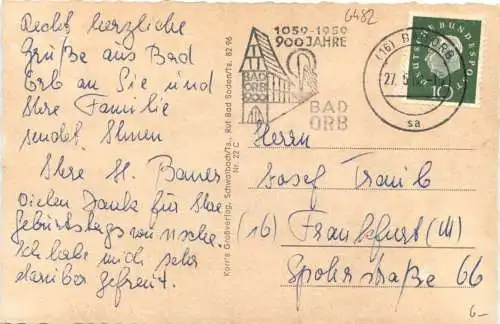 Recht herzliche
Grüße aus Bad
Orb an Sie und
Ihre Familie
sendet Ihnen
Ihre H. Bauer
Vielen Dank für Ihre
Geburtstagswünsche.
Ich habe mich sehr
darüber gefreut.
Korr's Großverlag, Schwalbach/Ts., Ruf Bad Soden/Ts. 8296
Nr. 22 C
6482
1059-1959
900 JAHRE
BAD
ORB
BAD
ORB
(16) BAD ORB
27.
sa
DEUTSCHE BUNDESPOST
10
Herrn
Josef Traub
(16) Frankfurt (M)
Spohrstraße 66
6-